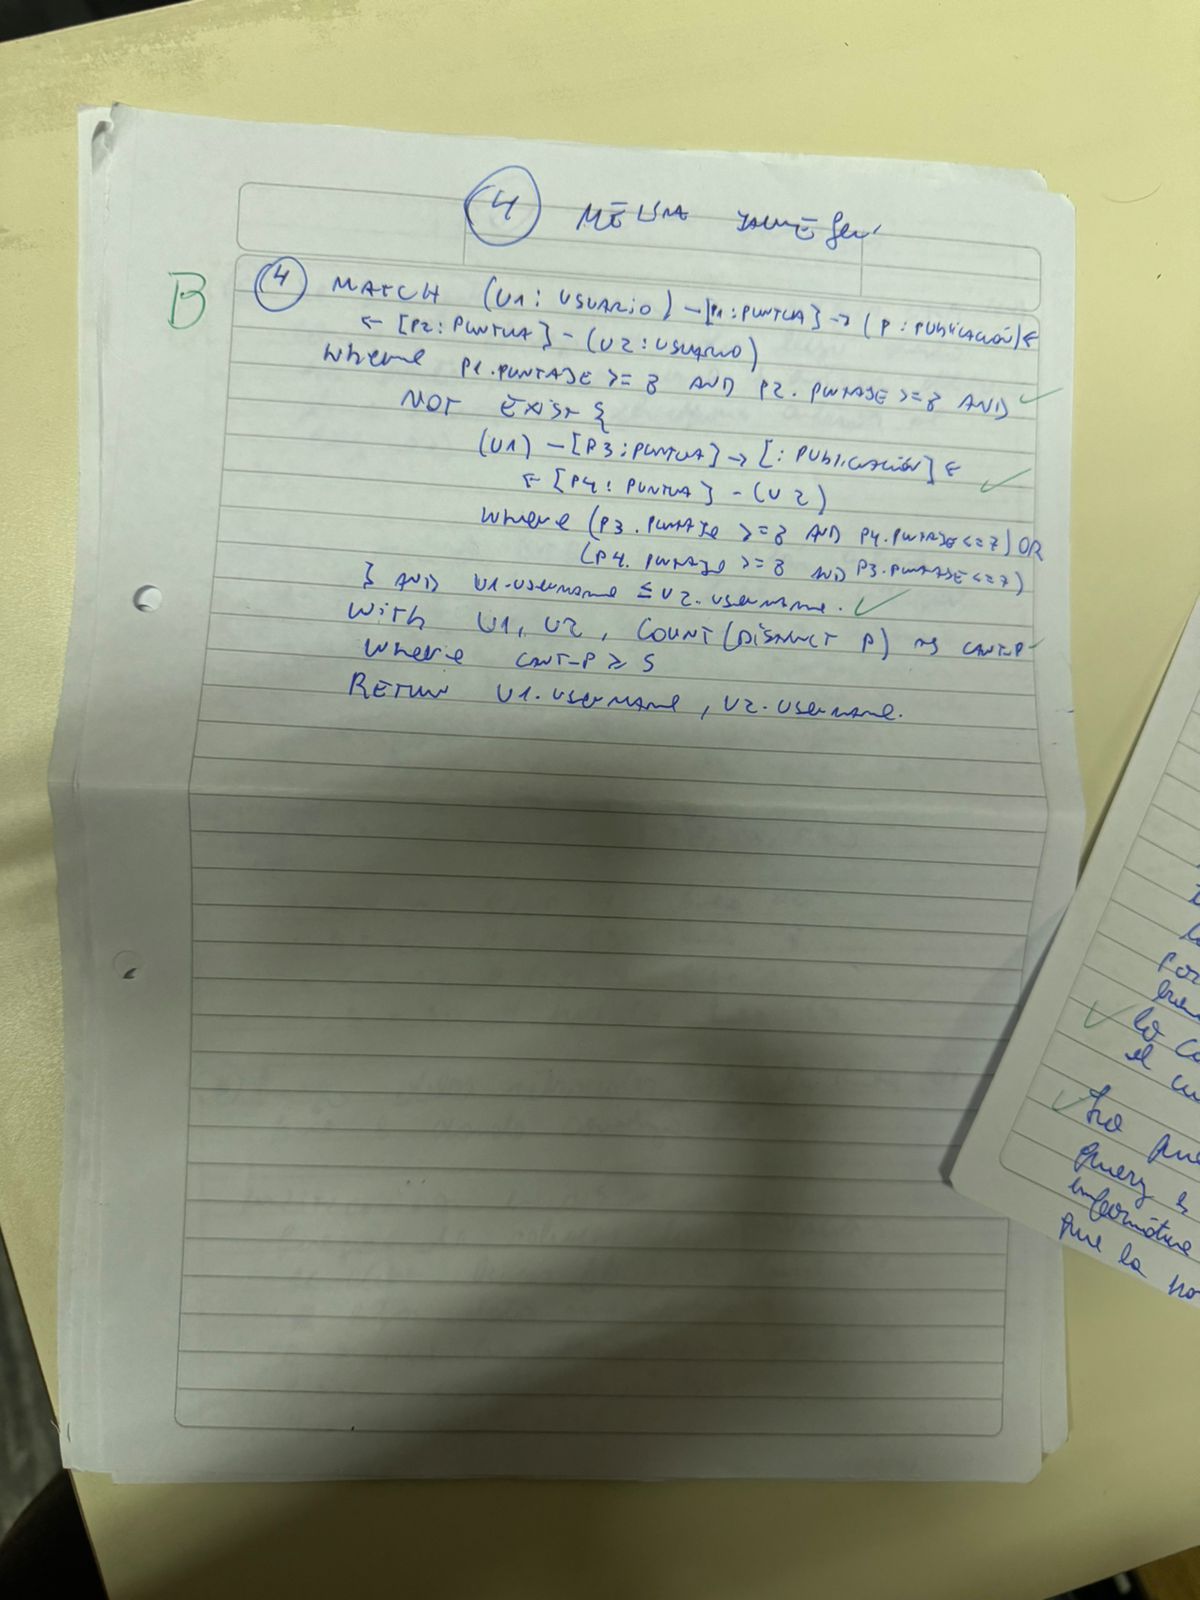 4
B
4 MATCH (U1: USUARIO) -[P1:PUNTUA]-> (P: PUBLICACIÓN)<
<- [P2: PUNTUA] - (U2: USUARIO)
Where P1.PUNTAJE >= 8 AND P2. PUNTAJE >= 8 AND
NOT EXIST {
(U1) - [P3: PUNTUA] -> [: PUBLICACIÓN] <
<- [P4: PUNTUA] - (U2)
Where (P3. PUNTAJE >= 8 AND P4. PUNTAJE <= 7) OR
(P4. PUNTAJE >= 8 AND P3. PUNTAJE <= 7)
} AND U1.username ≤ U2.username.
With U1, U2, COUNT(DISTINCT P) AS CANT-P
Where CANT-P ≥ 5
RETURN U1.username, U2.username.
lo
el
que
query
que la